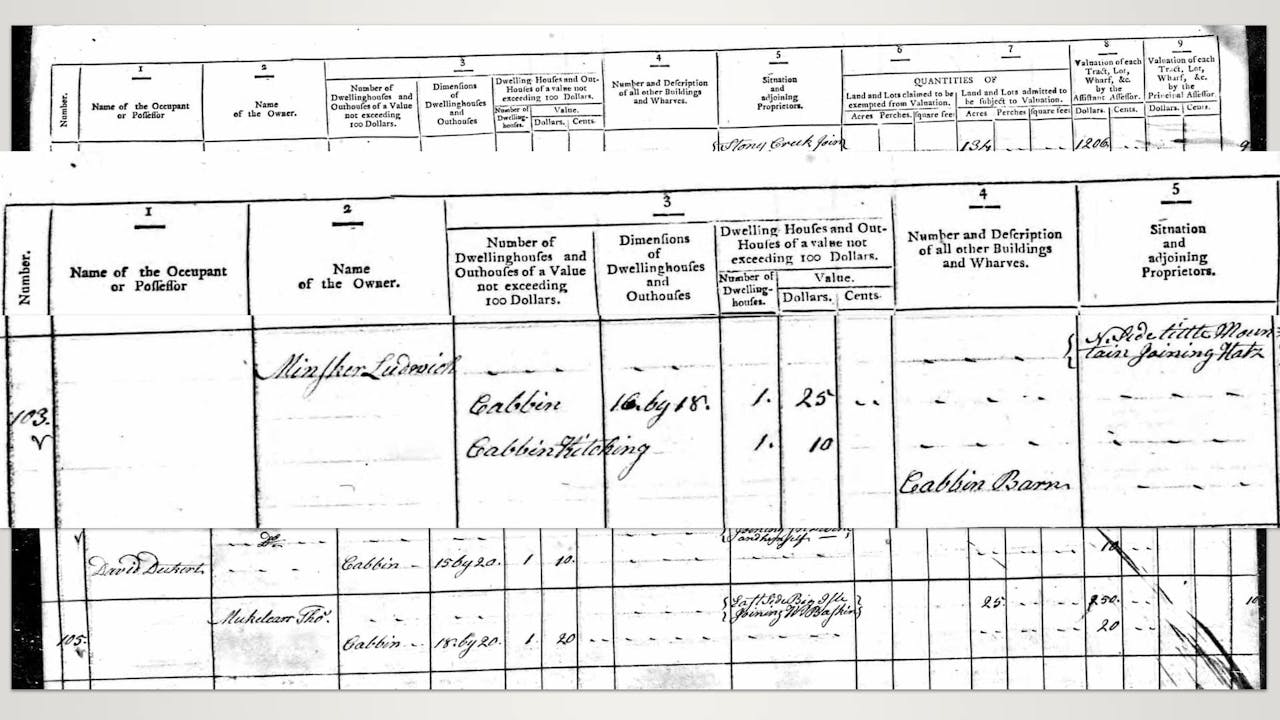 1 2 3 4 5 6 7 8 9
Number. Name of the Occupant or Possessor Name of the Owner. Number of Dwellinghouses and Outhouses of a Value not exceeding 100 Dollars. Dimensions of Dwellinghouses and Outhouses Dwelling Houses and Out-Houses of a value not exceeding 100 Dollars. Number of Dwelling-houses. Value. Dollars. Cents. Number and Description of all other Buildings and Wharves. Situation and adjoining Proprietors. QUANTITIES OF Land and Lots claimed to be exempted from Valuation. Acres Perches. square feet Land and Lots admitted to be subject to Valuation. Acres Perches square feet Valuation of each Tract, Lot, Wharf, &c. by the Assistant Assessor. Dollars. Cents. Valuation of each Tract, Lot, Wharf, &c. by the Principal Assessor. Dollars. Cents.
Stony Creek Join 134 1206
1 2 3 4 5
Number.
Name of the Occupant
or Possessor
Name
of the Owner.
Number of
Dwellinghouses and
Outhouses of a Value
not exceeding
100 Dollars.
Dimensions
of
Dwellinghouses
and
Outhouses
Dwelling Houses and Out-
Houses of a value not
exceeding 100 Dollars.
Number of
Dwelling-
houses.
Value.
Dollars. Cents.
Number and Description
of all other Buildings
and Wharves.
Situation
and
adjoining
Proprietors.
Minsker Ludwich N. Side little Moun=
tain Joining Hatz
103. Cabbin 16. by 18. 1. 25
Cabbin Kitching 1. 10
Cabbin Barn
Do. 10
David Deckert Cabbin 15 by 20. 1 10.
Mukelcarr Thos. East Side Big Isle 25. 250.
Joining W. Baskin
105. Cabbin 18. by 20 1. 20 20